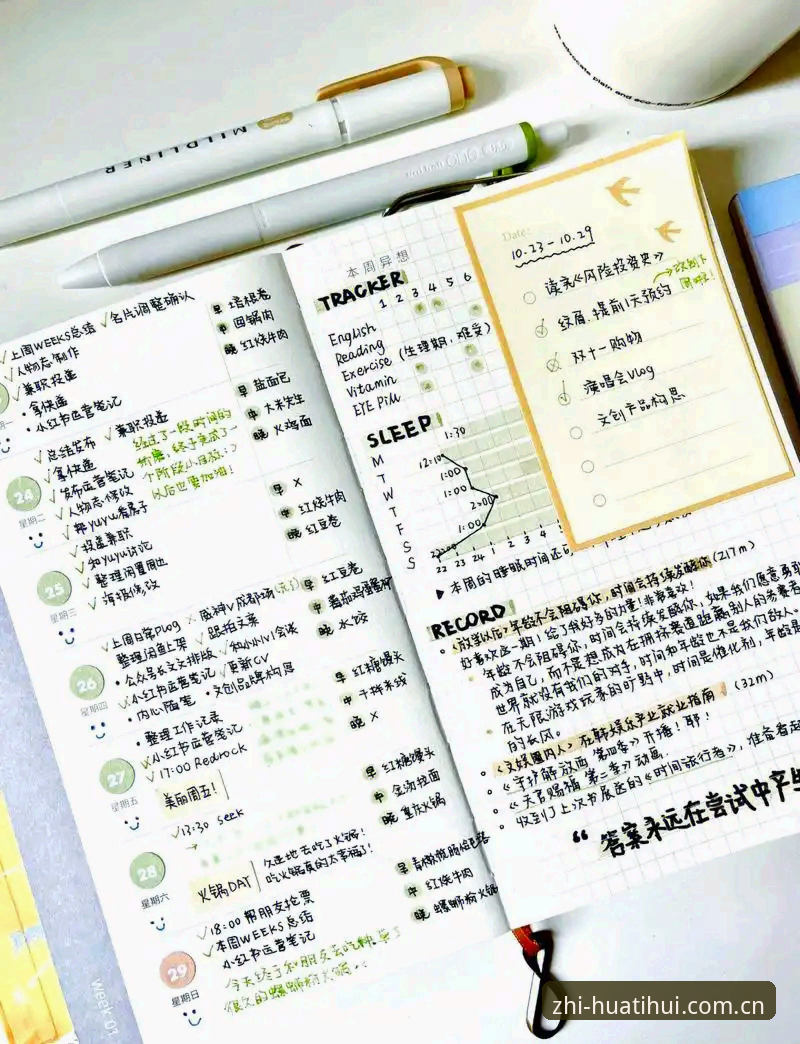 MILDLINER
上周WEEKS总结 √名片调整确认
√人物志制作
√兼职投递
• 拿快递
• 小红书运营笔记
星期一
早 塔根卷
中 回锅肉
晚 红烧牛肉
24
星期二
√总结发布 √兼职投递
√拿快递
√发布运营笔记
√人物志修改
√帮yuyu看房子
经过了一段时间的
折磨，终于完成了一
个阶段小目标:)
以后也要加油!
早 盐面包
中 大米先生
晚 火鸡面
25
星期三
√投递兼职
√和yuyu讨论
√整理闲置周边
√海报修改
早 X
中 红烧牛肉
晚 红豆卷
26
星期四
√上周同学Plog
整理闲鱼上架
√公众号长文排版 √和小小小会谈
√小红书运营笔记 √更新CV
• 内心随笔 • 文创品牌构思
早 红豆卷
晚 水饺
27
星期五
• 整理工作记录
√小红书运营笔记
√17:00 Redrock
美丽周五!
早 红糖馒头
中 干拌米线
晚 X
28
星期六
√13:30 seek
→
火锅DAY
久违地去吃了火锅!
吃火锅真的太幸福了!
早 红糖馒头
中 金汤拉面
晚 重庆火锅
29
星期日
√18:00 帮朋友抢票
√本周WEEKS总结
小红书运营笔记
今天终于和朋友去吃种草了
很久的螺蛳粉火锅
中 红烧牛肉
晚 螺蛳粉火锅
week 01
本周异想
TRACKER
1 2 3 4 5 6
English
Reading
Exercise (生理期,难受)
Vitamin
EYE Pill
SLEEP
M
T
W
T
F
S
S
1:30
12:10
1:00
1:00
2:00
1:00
22 23 24 1 2 3 4
▶ 本周的睡眠时间还
Date:
10.23-10.29
读完《风险投资史》
→改到下周啦!
纹眉，提前1天预约
双十一购物
演唱会Vlog
文创产品构思
RECORD
• 《放学以后》年龄不会阻碍你，时间会持续发酵你 (217m)
好喜欢这一期!给了我好多的力量!非常喜欢!
• 年龄不会阻碍你，时间会持续发酵你，如果我们愿意勇敢
成为自己，而不是想成为在拥挤赛道跑赢别人的
世界就没有我们的对手，时间和年龄也不是我们敌人。
在无限游戏玩家的旷野中，时间是催化剂，年龄是
的长风。
• 《文娱圈内人》在韩娱乐产业就业指南 (32m)
• 《守护解放西 第四季》开播!耶!
• 《天官赐福 第二季》动画.
• 收到了上次书展送的《时间旅行者》，准备看起
“答案永远在尝试中产生
zhi-huatihui.com.cn